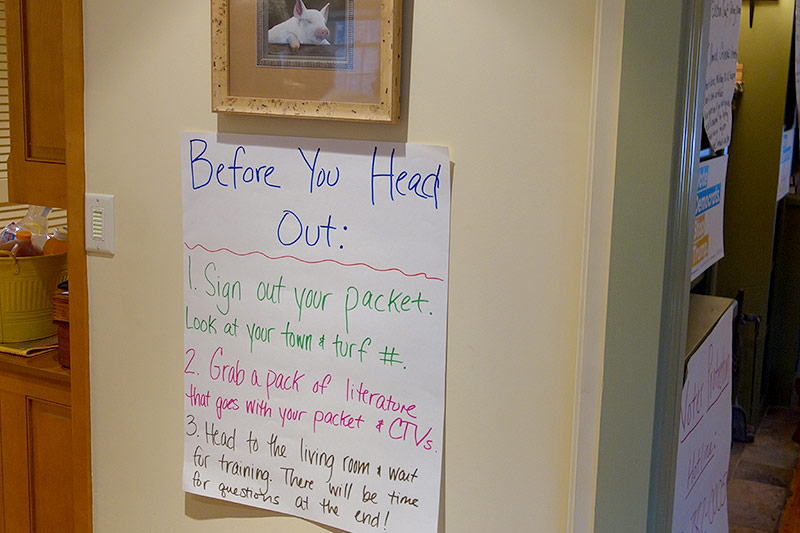 Before You Head
Out:
1. Sign out your packet.
Look at your town & turf #.
2. Grab a pack of literature
that goes with your packet & CTVs.
3. Head to the living room & wait
for training. There will be time
for questions at the end!
Democrats
Voter
Hotline: